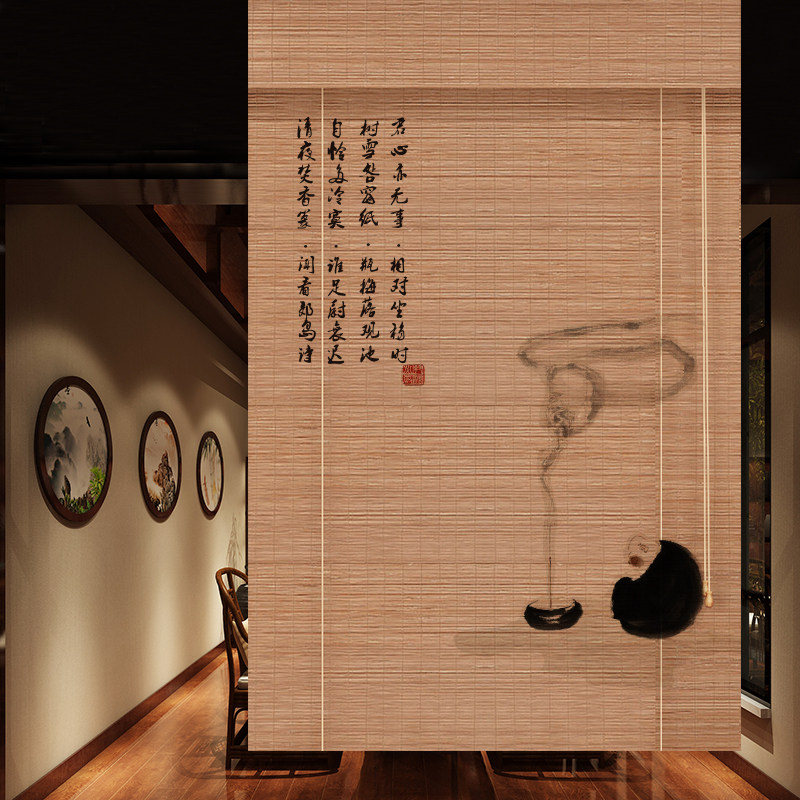 君心亦无事·相对坐移时
树雪窗纸·瓶梅落现池
自怜多冷寞·谁足尉衰迟
清夜焚香·闲看郎岛诗